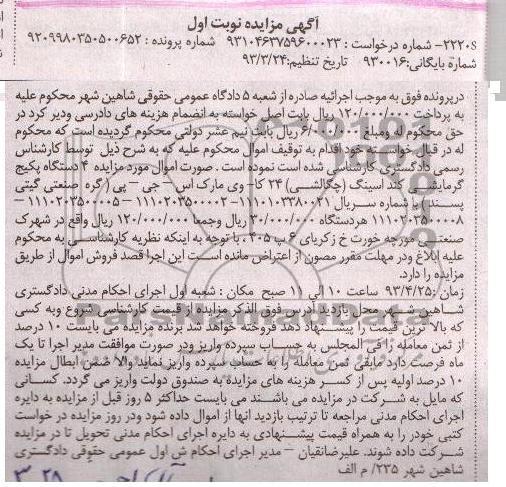 آگهی مزایده نوبت اول
۲۲۲۰s- شماره درخواست : ۹۳۱۰۴۶۳۷۵۹۶۰۰۰۲۳ شماره پرونده : ۹۲۰۹۹۸۰۳۵۰۵۰۰۶۵۲
شماره بایگانی: ۹۳۰۰۱۶ تاریخ تنظیم: ۹۳/۳/۲۴
درپرونده فوق به موجب اجرائیه صادره از شعبه ۵ دادگاه عمومی حقوقی شاهین شهر محکوم علیه
به پرداخت ۱۲۰/۰۰۰/۰۰۰ ریال بابت اصل خواسته به انضمام هزینه های دادرسی ودیر کرد در
حق محکوم له ومبلغ ۶/۰۰۰/۰۰۰ ریال بابت نیم عشر دولتی محکوم گردیده است که محکوم
له در قبال خواسته خود اقدام به توقیف اموال محکوم علیه که به شرح ذیل توسط کارشناس
رسمی دادگستری کارشناسی شده است نموده است . صورت اموال مورد مزایده ۴ دستگاه پکیج
گرمایشی کند اسینگ (چگالشی) ۲۴ کا- وی مارک اس – جی – پی ( گره صنعتی گیتی
پسند) به شماره سریال ۱۱۱۰۱۰۳۳۸۰۰۲۱- ۱۱۱۰۲۰۳۵۰۰۰۰۲ – ۱۱۱۰۲۰۳۵۰۰۰۰۵ –
۱۱۱۰۲۰۲۵۰۰۰۰۸ هردستگاه ۳۰/۰۰۰/۰۰۰ ریال وجمعا ۱۲۰/۰۰۰/۰۰۰ ریال واقع در شهرک
صنعتی مورچه خورت خ زکریای ۶ پ ۴۰۵ ، با توجه به اینکه نظریه کارشناسی به محکوم
علیه ابلاغ ودر مهلت مقرر مصون از اعتراض مانده است این اجرا قصد فروش اموال از طریق
مزایده را دارد.
زمان :۹۳/۴/۲۵ ساعت ۱۰ الی ۱۱ صبح مکان : شعبه اول اجرای احکام مدنی دادگستری
شاهین شهر و محل بازدید آدرس فوق الذکر مزایده از قیمت کارشناسی شروع وبه کسی
که بالا ترین قیمت را پیشنهاد دهد فروخته خواهد شد برنده مزایده می بایست ۱۰ درصد
از ثمن معامله را فی المجلس به حساب سپرده واریز ودر صورت موافقت مدیر اجرا تا یک
ماه فرصت دارد مابقی ثمن معامله را به حساب سپرده واریز نماید والا ضمن ابطال مزایده
۱۰ درصد اولیه پس از کسر هزینه های مزایده به صندوق دولت واریز می گردد. کسانی
که مایل به شرکت در مزایده می باشند می بایست حداکثر ۵ روز قبل از مزایده به دایره
اجرای احکام مدنی مراجعه تا ترتیب بازدید انها از اموال داده شود ودر روز مزایده در خواست
کتبی خودر را به همراه قیمت پیشنهادی به دایره اجرای احکام مدنی تحویل تا در مزایده
شرکت داده شوند. علیرضانقیان – مدیر اجرای احکام ش اول عمومی حقوقی دادگستری
شاهین شهر ۲۳۵/ م الف